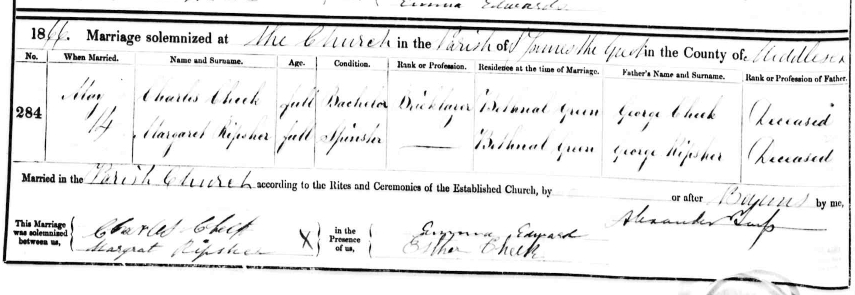 Emma Edwards
1866. Marriage solemnized at the Church in the Parish of St James the Great in the County of Middlesex
No. When Married. Name and Surname. Age. Condition. Rank or Profession. Residence at the time of Marriage. Father's Name and Surname. Rank or Profession of Father.
284 May 14 Charles Cheek full Bachelor Bricklayer Bethnal Green George Cheek Deceased
Margaret Ripsher full Spinster Bethnal Green George Ripsher Deceased
Married in the Parish Church according to the Rites and Ceremonies of the Established Church, by or after Banns by me,
Alexander
This Marriage was solemnized between us, Charles Cheek in the Presence of us, Emma Edward
Margrat Ripsher X Esther Cheek